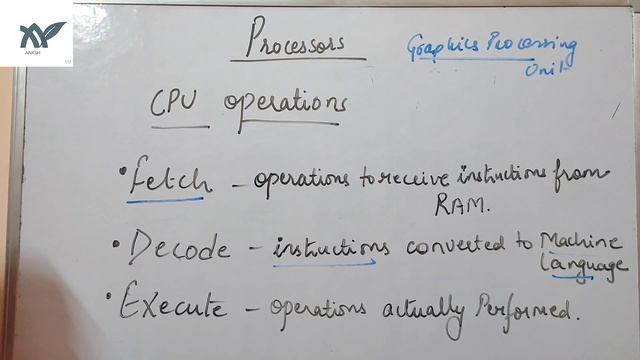 ANKSH
TM
Processors
Graphics Processing
Unit
CPU operations
• Fetch – operations to receive instructions from
RAM.
• Decode – instuctions converted to Machine
Language
• Execute – operations actually Performed.